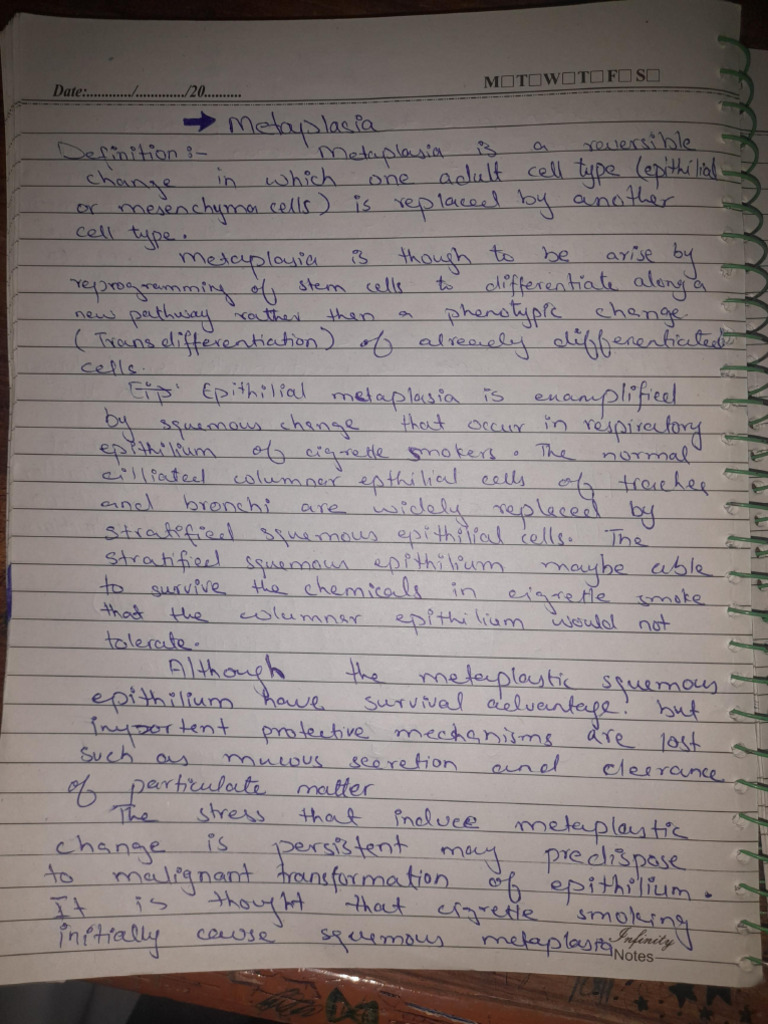 Date:............/............./20..........
M□T□W□T□F□S□
→ Metaplasia
Definition :- Metaplasia is a reversible
change in which one adult cell type (epithilial
or mesenchyma cells) is replaced by another
cell type.
Metaplasia is though to be arise by
reprogramming of stem cells to differentiate along a
new pathway rather then a phenotypic change
(Transdifferentiation) of already differentiated
cells.
Epithilial metaplasia is examplified
by squemous change that occur in respiratory
epithilium of cigrette smokers. The normal
cilliated columner epthilial cells of trachea
and bronchi are widely replaced by
stratified squemous epithilial cells. The
stratified squemous epithilium maybe able
to survive the chemicals in cigrette smoke
that the columner epithilium would not
tolerate.
Although the metaplastic squemous
epithilium have survival advantage. but
importent protective mechanisms are lost
such as mucous secretion and cleerance
of particulate matter
The stress that induce metaplastic
change is persistent may predispose
to malignant transformation of epithilium.
It is thought that cigrette smoking
initially cause squemous metaplasia
Infinity
Notes